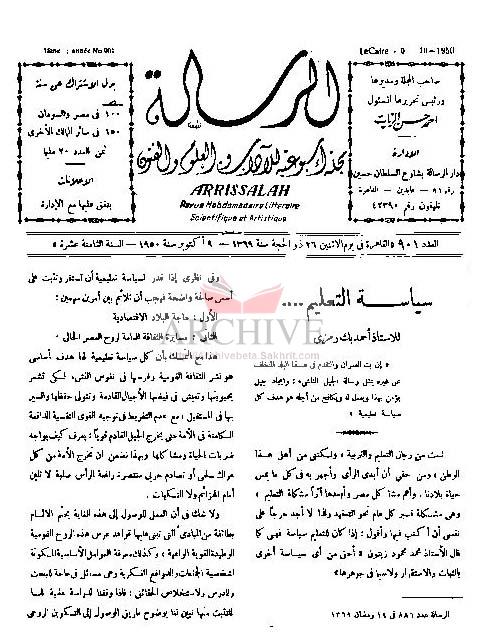 18me : année No 901
LeCaire - 9 - 10 - 1950
صاحب المجلة ومديرها
ورئيس تحريرها المسئول
احمد حسن الزيات
الادارة
دار الرسالة بشارع السلطان حسين
رقم ٨١ - عابدين - القاهرة
تليفون رقم ٤٢٣٩٠
الرسالة
مجلة أسبوعية للآداب والعلوم والفنون
ARRISSALAH
Revue Hebdomadaire Litteraire
Scientifique et Artistique
بدل الاشتراك عن سنة
١٠٠ في مصر والسودان
١٥٠ في سائر الممالك الأخرى
ثمن العدد ٢٠ مليا
الاعلانات
يتفق عليها مع الادارة
العدد ٩٠١ « القاهرة في يوم الاثنين ٢٦ ذو الحجة سنة ١٣٦٩ - ٩ أكتوبر سنة ١٩٥٠ - السنة الثامنة عشرة »
سياسة التعليم ....
للأستاذ أحمد بك رمزي
« إن بث العمران والتقدم في
عن غيره يمثل رسالة الجيل الناشئ، وإيجاد جيل
يؤمن بهذا ويعمل له ويكافح من أجله هو هدف كل
سياسة تعليمية »
لست من رجال التعليم والتربية « ولكنني من أهل هذا
الوطن » ومن حقي أن أبدي الرأي وأجهر به في كل ما يمس
حياة بلادنا . وأهم مشاكل مصر وأبعدها أثراً مشكلة التعليم «
وهي مشكلة تسير كل عام نحو التعقيد ولهذا لا أجد حرجاً على
نفسي أن أكتب فيها وأقول : إذا كان للتعليم سياسة فهي كما
قال الأستاذ محمد محمود زيتون « أحق من أي سياسة أخرى
بالثبات والاستقرار ولا سيما في جوهرها »
الرسالة عدد ٨٨٦ في ١٩ رمضان ١٣٦٩
وفي نظري إذا قدر لسياسة تعليمية أن تستقر وتثبت على
أسس صالحة واضحة فيجب أن تلائم بين أمرين مهمين :
الأول : حاجة البلاد الاقتصادية
الثاني : مسايرة الثقافة العامة لروح العصر الحالي .
هذا مع التمسك بأن كل سياسة تعليمية لها هدف أساسي
هو نشر الثقافة القومية وغرسها في نفوس النشء ، لكي تشعر
بحيويتها وتعيش في فيضها الأجيال القادمة وتتولى حفظها والسير
بها في المستقبل ، مع عدم التفريط في توجيه القوى النفسية الدافعة
الكامنة في الأمة حتى يخرج الجيل القادم قوياً : يعرف كيف يواجه
ضربات الحياة ومشاكلها وبهذا نضمن أن تخرج الأمة من كل
عراك سلمي أو تصادم حربي منتصرة رافعة الرأس صلبة لا تلين
أمام الهزائم ولا النكبات .
ولا شك في أن العمل للوصول إلى هذه الغاية يحتم الالمام
بطائفة من المبادئ التي تبنى عليها قواعد غرس هذه الروح القومية
الوطنية القوية الدافعة « وكذلك معرفة العوامل الأساسية المكونة
لشخصية الجماعات والدوافع الفكرية وهي مسائل في حاجة للبحث
والدراسة واستخلاص الحقائق ، فاذا وفقنا لدراسة
للتثبت منها تبين لنا بوضوح طريق الوصول إلى التكوين الروحي
ARCHIVE
archivebeta.Sakhrit.com